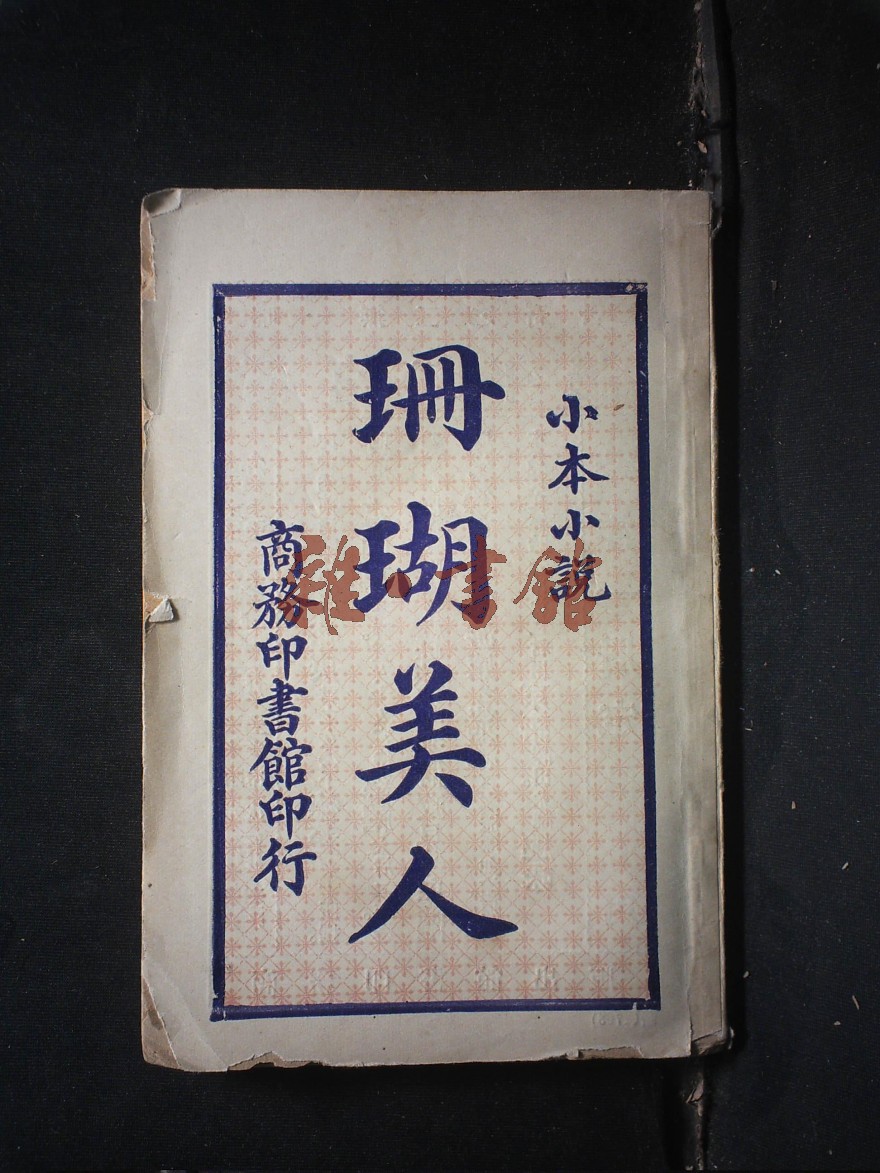 小本小說
珊瑚美人
商務印書館印行
雅·書館